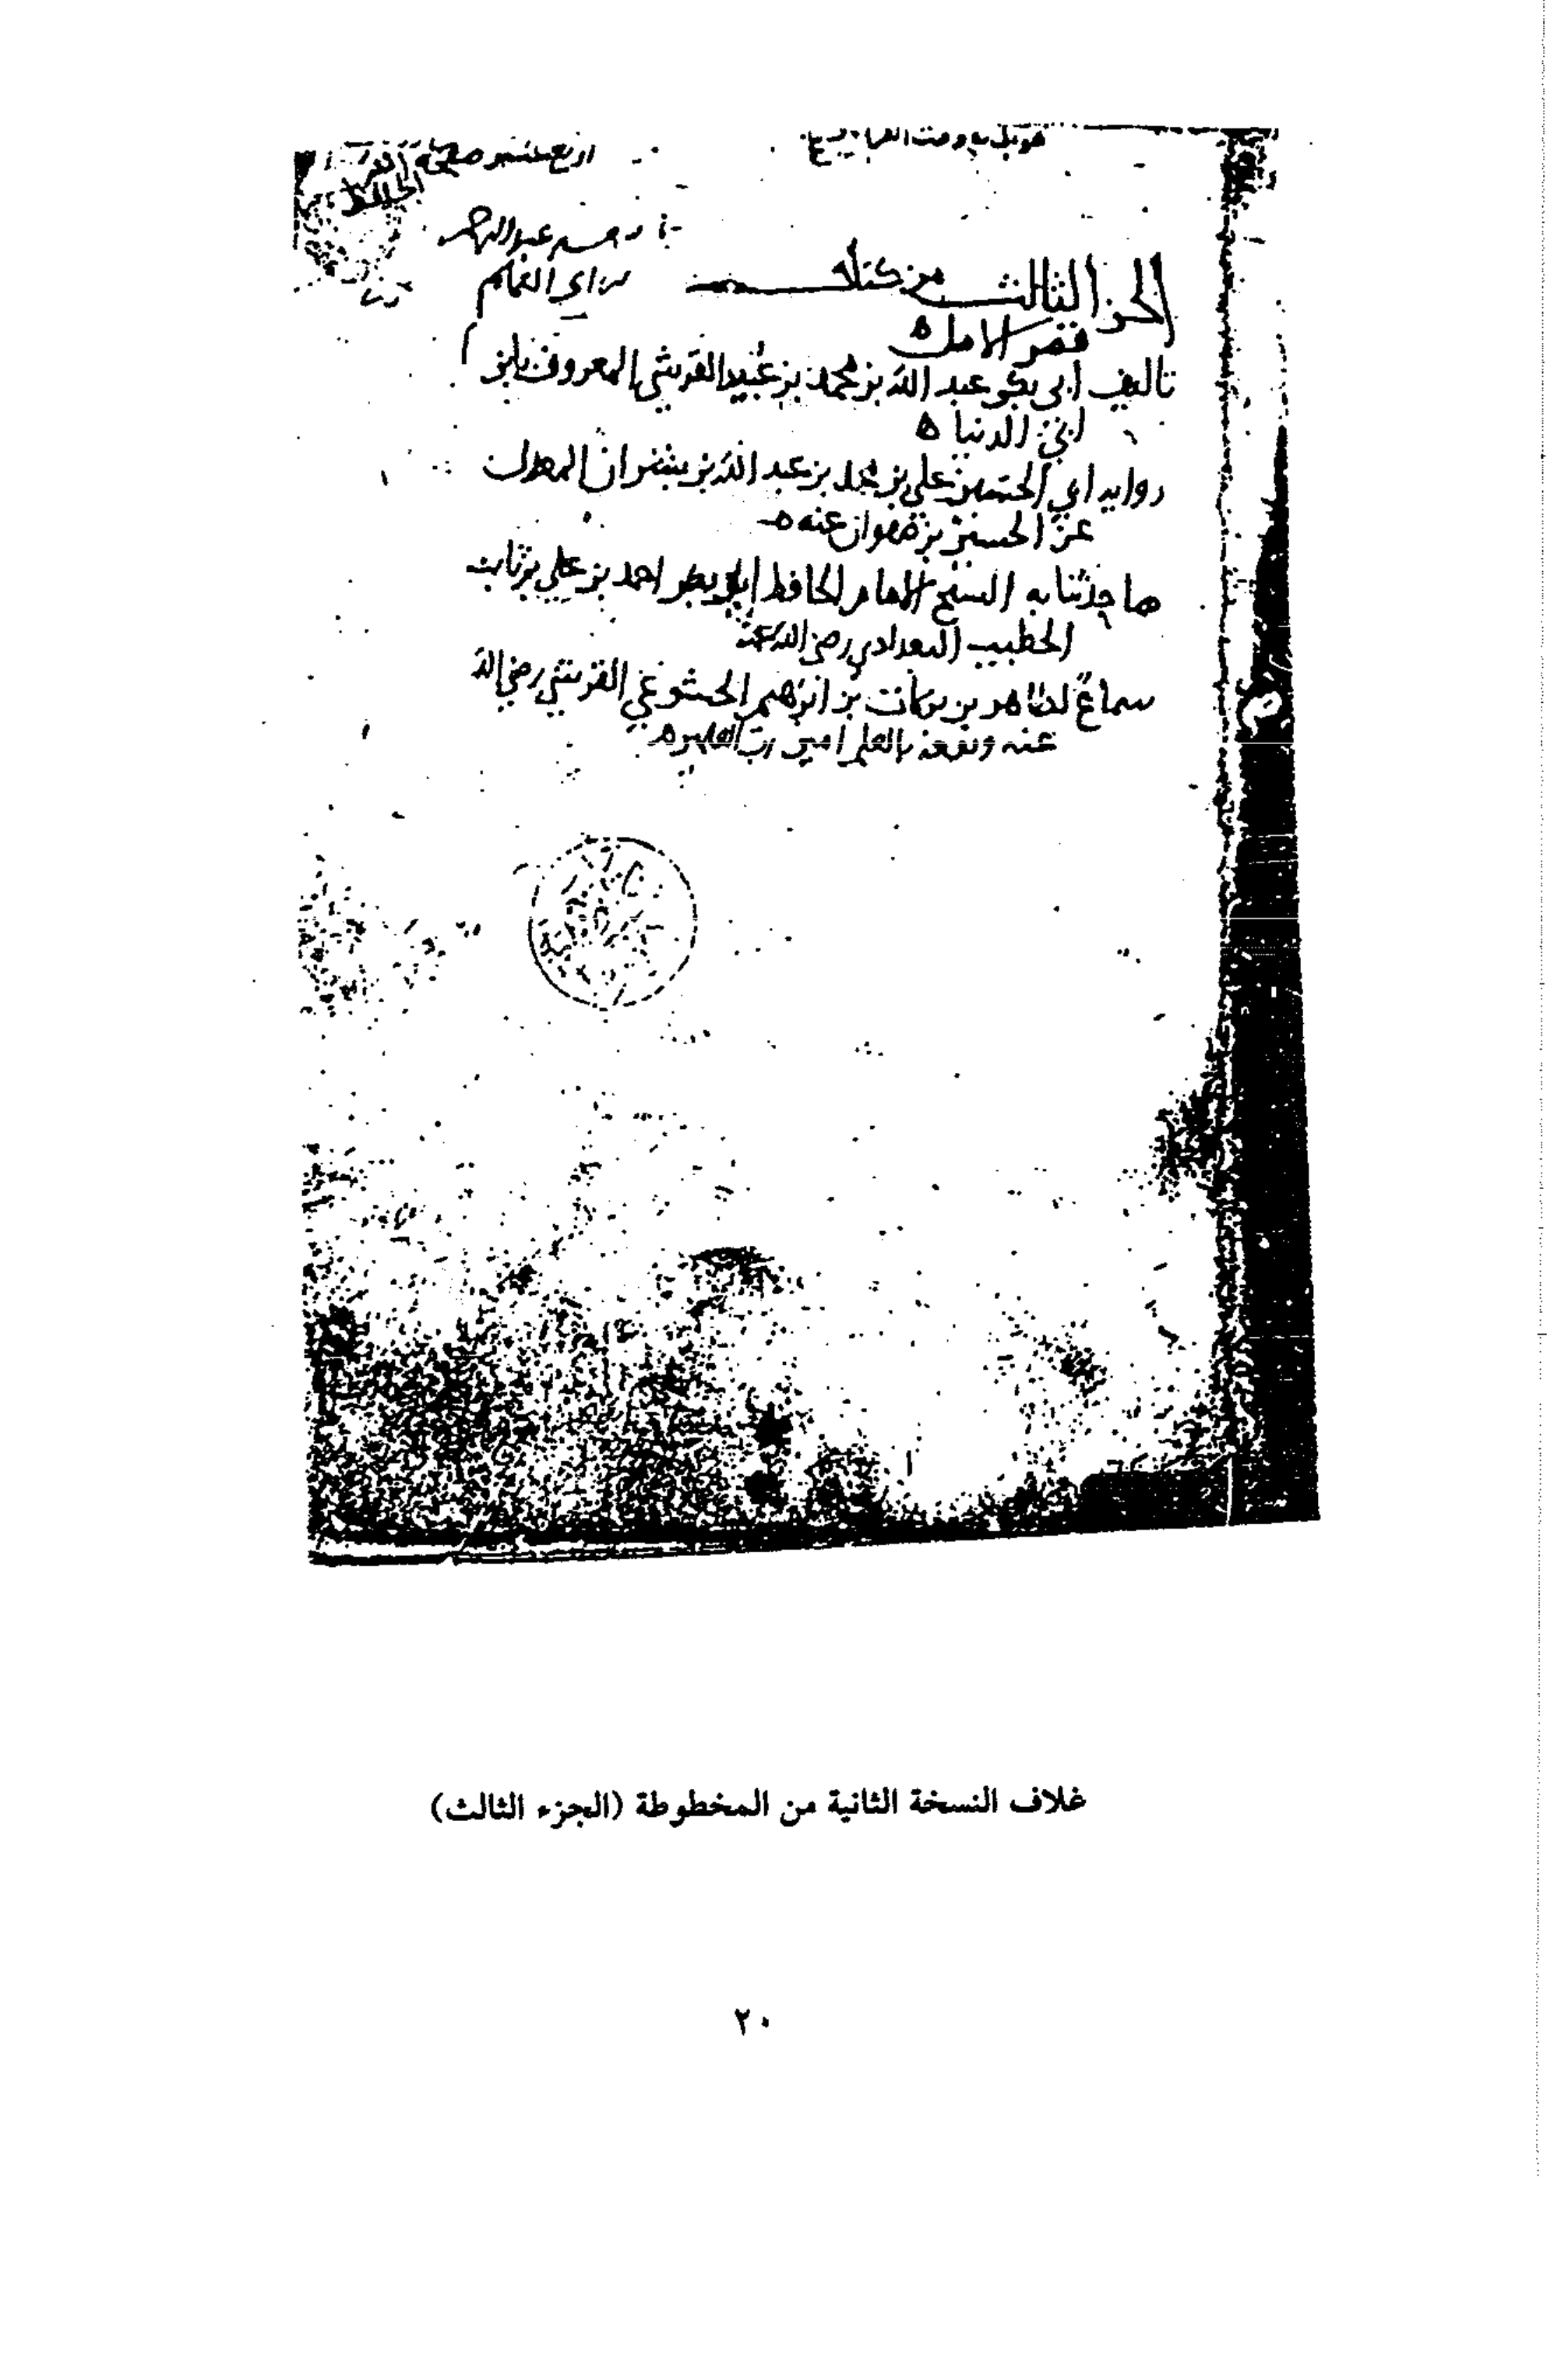 الجز الثالث من كتاب
قصر الامل ه
تاليف ابي بكر عبد الله بن محمد بن عبيد القرشي المعروف بابن
ابي الدنيا ه
روايه ابي الحسين علي بن محمد بن عبد الله بن بشران المعدل
عن الحسين بن صفوان عنه ه
ما حدثنا به الشيخ الامام الحافظ ابو بكر احمد بن علي بن ثابت
الخطيب البغدادي رضي الله عنه
سماع لطاهر بن بركات بن ابرهيم الخشوعي القرشي رضي الله
عنه ونفعه بالعلم امين رب العلمين ه
غلاف النسخة الثانية من المخطوطة (الجزء الثالث)
٢٠